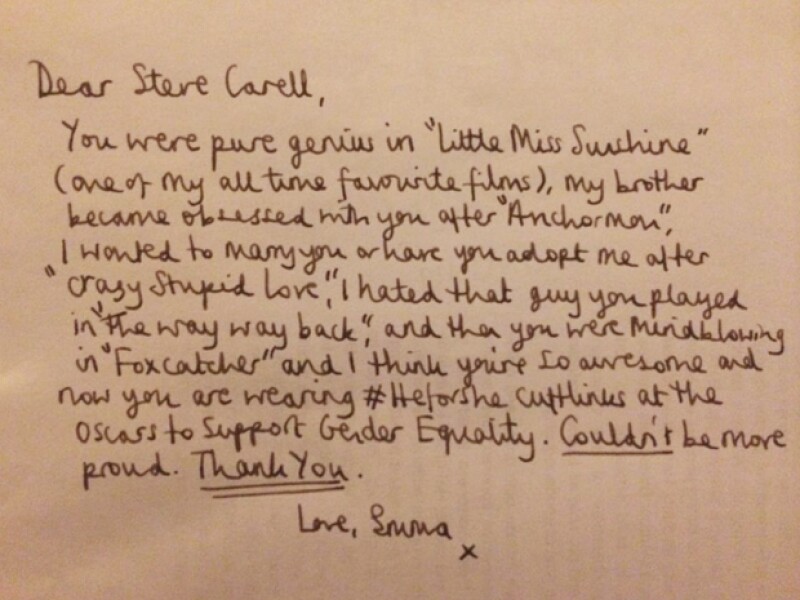 Dear Steve Carell,
You were pure genius in "Little Miss Sunshine"
(one of my all time favourite films), my brother
became obsessed with you after "Anchorman",
I wanted to marry you or have you adopt me after
"Crazy Stupid Love", I hated that guy you played
in "the way way back", and then you were Mindblowing
in "Foxcatcher" and I think you're so awesome and
now you are wearing #Heforshe cufflinks at the
Oscars to Support Gender Equality. Couldn't be more
proud. Thank You.
Love, Emma
x